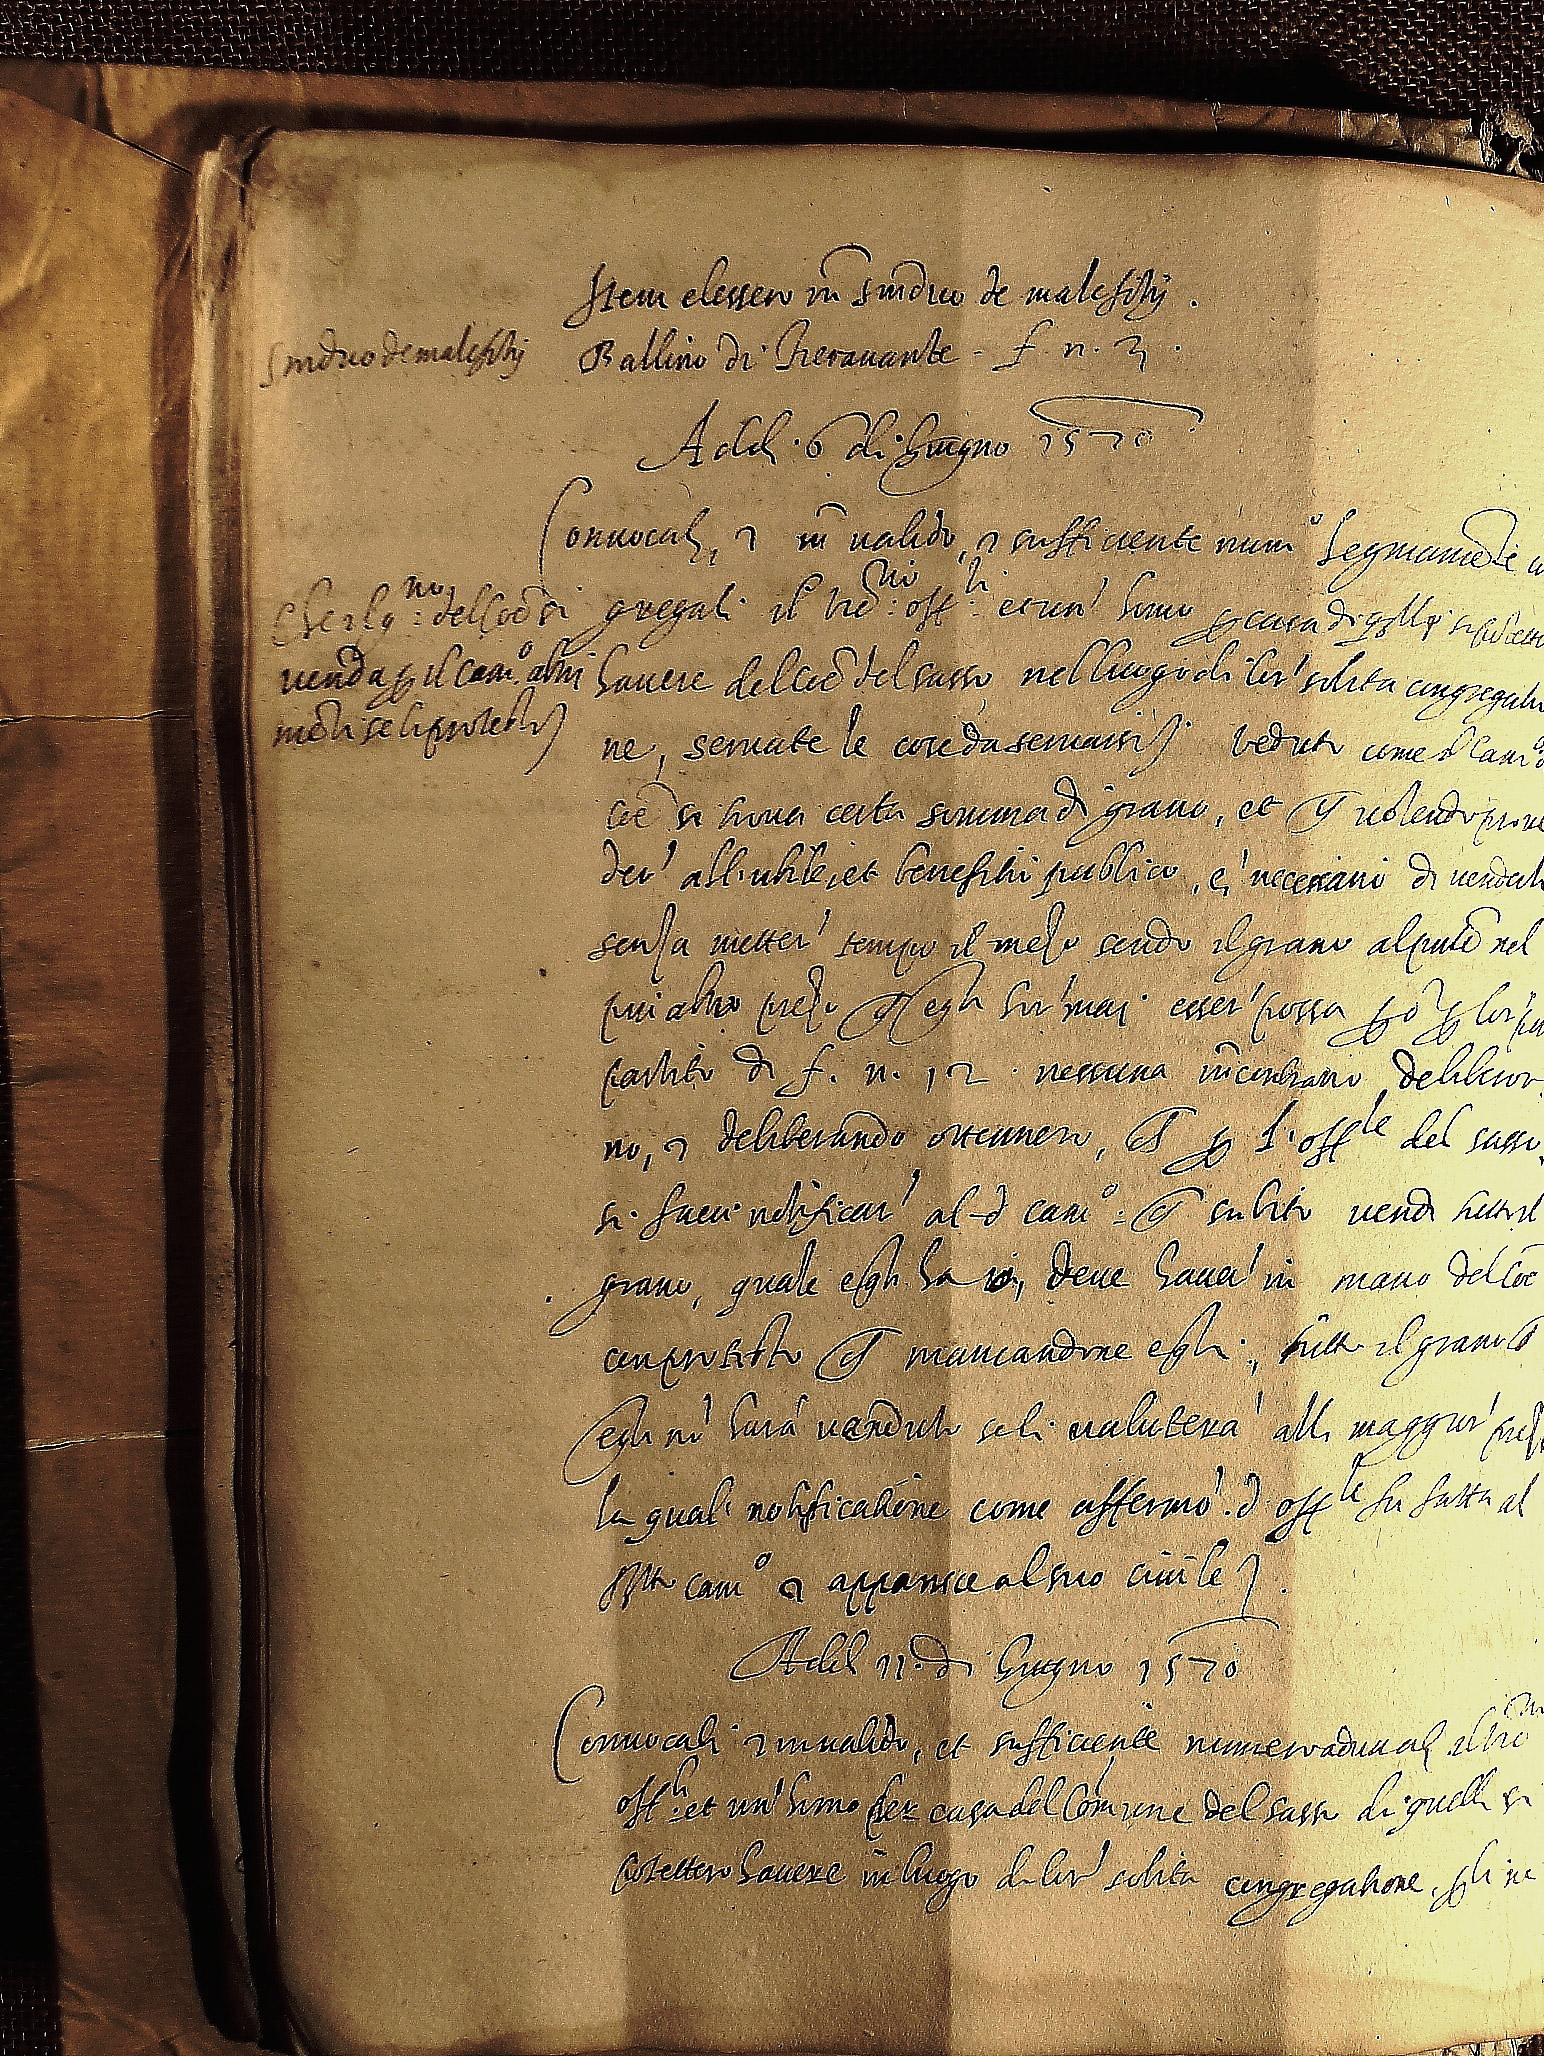 Item elessero in Sindico de malefitij.
Sindico de malefitij
Ballino di Pieravante - f. n. 3.
Addi 6 di Giugno 1570
Convocati, et in valido, et sufficiente num° legitimamēte
gregati il vic° off.li et un' homo p casa di qlli si
Che il g° no del Coē si
venda p il Cam°
havere del coē del sasso nel luogo di lor' solita congregatio
ne, servate le cose da servarsi veduto come il Cam°
coē si trova certa somma di grano, et volendo prove
der' all'utile, et benefitio publico, e' necessario di venderlo
senza metter' tempo il mezo sendo il grano al pntē nel
piu alto prezo egli hor'mai esser' possa p d° p lor'
partito di f. n. 12 nessuna incontrario, deliberor
no, et deliberando ottennero, p l'off.le del sasso
si facci notificar' al d° cam° subito vendi tutto il
grano, quale egli ha deve haver' in mano del Coē
con protesto mancandone egli, tutto il grano
egli no' harà venduto se li valuterà alli maggior' prezi
la qual' notificatione come affermò d° off.le fu fatta al
cam° et apparisce al suo civile
Addi 11 di Giugno 1570
Convocati et in valido, et sufficiente numero adunati il vic°
off.li et un' homo per casa del Comune del sasso di quelli si
potettero havere in luogo di lor' solita congregatione,